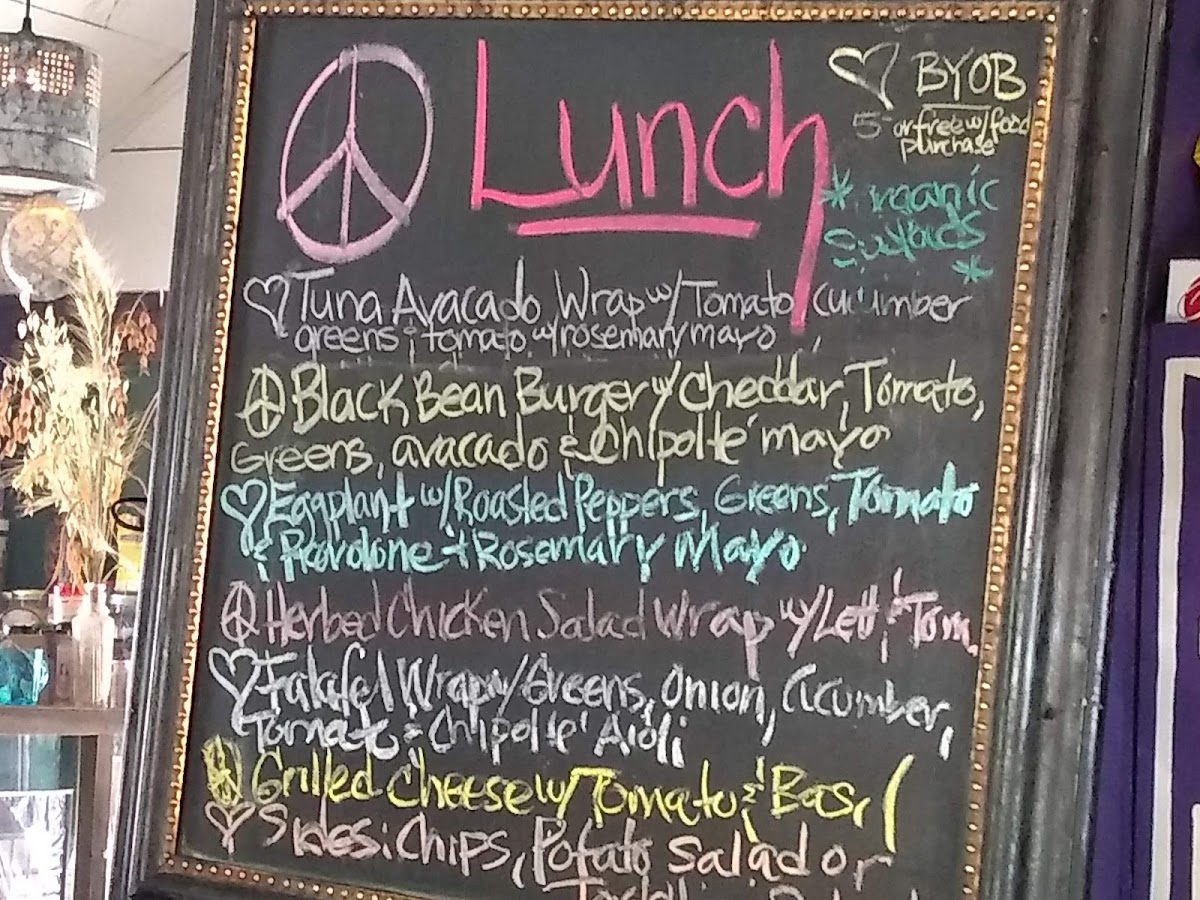 Lunch
BYOB
5- or free w/ food
purchase
Tuna Avacado Wrap w/ Tomato, cucumber
greens & tomato w/ rosemary mayo
Black Bean Burger w/ Cheddar, Tomato,
Greens, avacado & Chipolte mayo
Eggplant w/ Roasted Peppers, Greens, Tomato
& Provolone + Rosemary Mayo
Herbed Chicken Salad Wrap w/ Lett & Tom
Falafel Wrap w/ Greens, Onion, Cucumber,
Tomato & Chipolte Aioli
Grilled Cheese w/ Tomato & Basil
Sides: Chips, Potato Salad or